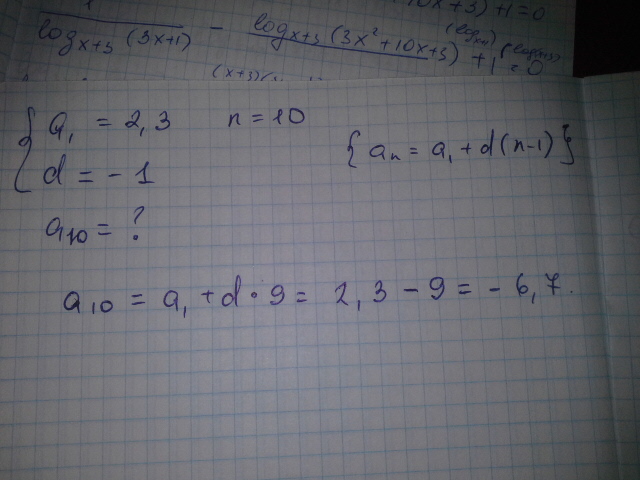 10x+3) +1=0
1 / log_{x+3} (3x+1) − log_{x+3} (3x² + 10x + 3) + 1 = 0
(x+3)(
a₁ = 2,3 n = 10
{ a_n = a₁ + d(n-1) }
d = - 1
a₁₀ = ?
a₁₀ = a₁ + d · 9 = 2,3 - 9 = - 6,7.